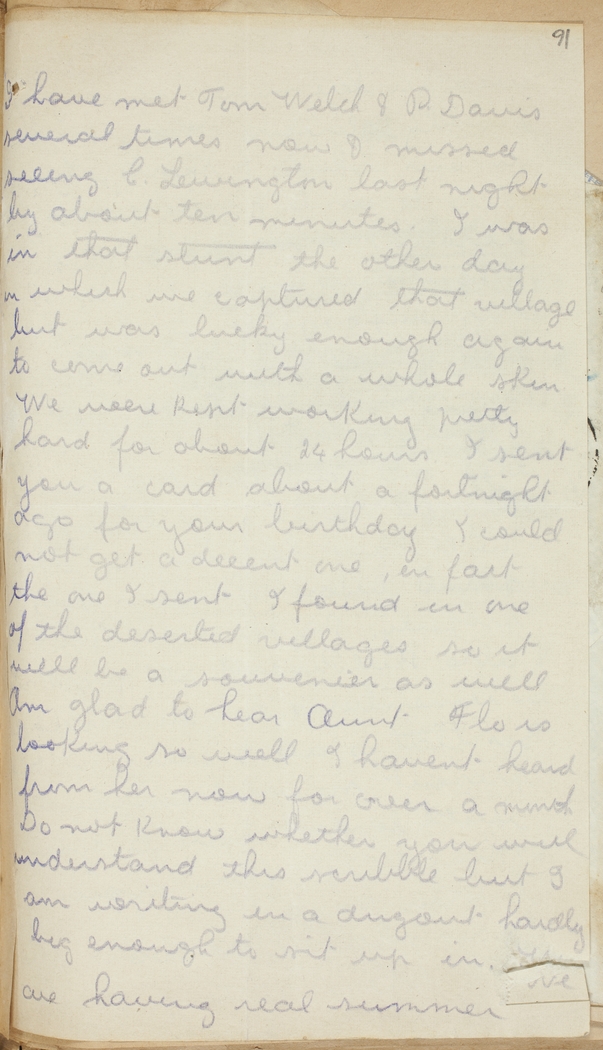 91
I have met Tom Welch & P. Davis
several times now & missed
seeing C. Lewington last night
by about ten minutes. I was
in that stunt the other day
in which we captured that village
but was lucky enough again
to come out with a whole skin
We were kept working pretty
hard for about 24 hours I sent
you a card about a fortnight
ago for your birthday I could
not get a decent one, in fact
the one I sent I found in one
of the deserted villages so it
will be a souvenier as well
Am glad to hear Aunt Flo is
looking so well I havent heard
from her now for over a month
Do not know whether you will
understand this scribble but I
am writing in a dugout hardly
big enough to sit up in. We
are having real summer